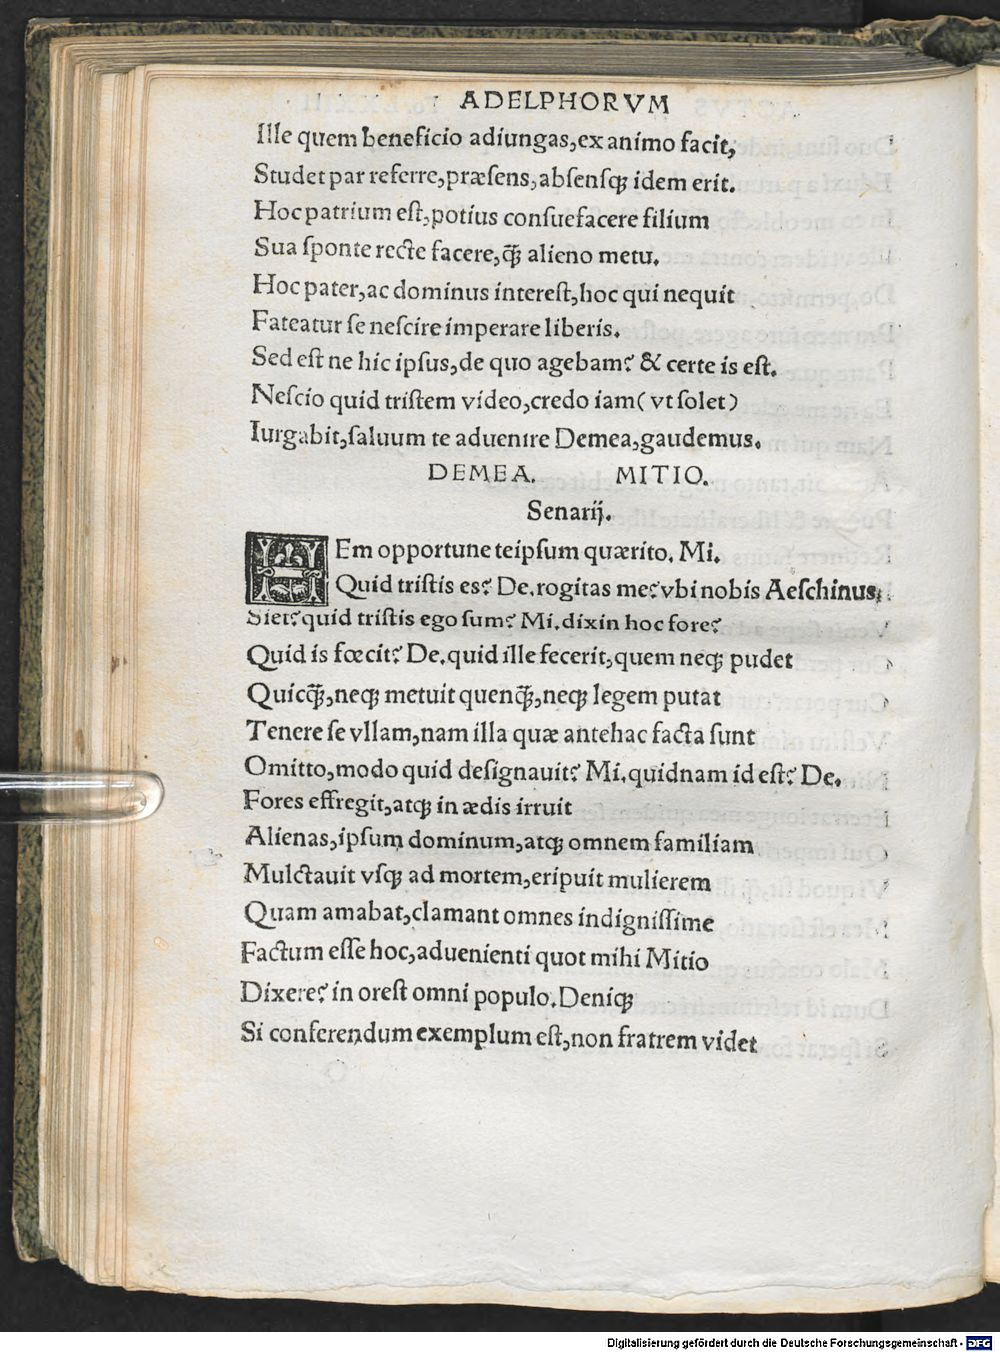 ADELPHORVM
Ille quem beneficio adiungas,ex animo facit,
Studet par referre,præsens,absensqꝫ idem erit.
Hoc patrium est,potius consuefacere filium
Sua sponte recte facere,q̃ꝫ alieno metu.
Hoc pater,ac dominus interest,hoc qui nequit
Fateatur se nescire imperare liberis.
Sed est ne hic ipsus,de quo agebam? & certe is est.
Nescio quid tristem video,credo iam( vt solet)
Iurgabit,saluum te aduenire Demea,gaudemus.
DEMEA. MITIO.
Senarij.
HEm opportune teipsum quærito. Mi.
Quid tristis es? De.rogitas me?vbi nobis Aeschinus
Siet?quid tristis ego sum? Mi.dixin hoc fore?
Quid is fœcit? De.quid ille fecerit,quem neqꝫ pudet
Quicq̃ꝫ,neqꝫ metuit quenq̃ꝫ,neqꝫ legem putat
Tenere se vllam,nam illa quæ antehac facta sunt
Omitto,modo quid designauit? Mi.quidnam id est? De.
Fores effregit,atqꝫ in ædis irruit
Alienas,ipsum dominum,atqꝫ omnem familiam
Mulctauit vsqꝫ ad mortem,eripuit mulierem
Quam amabat,clamant omnes indignissime
Factum esse hoc,aduenienti quot mihi Mitio
Dixere? in orest omni populo.Deniqꝫ
Si conferendum exemplum est,non fratrem videt
Digitalisierung gefördert durch die Deutsche Forschungsgemeinschaft - DFG